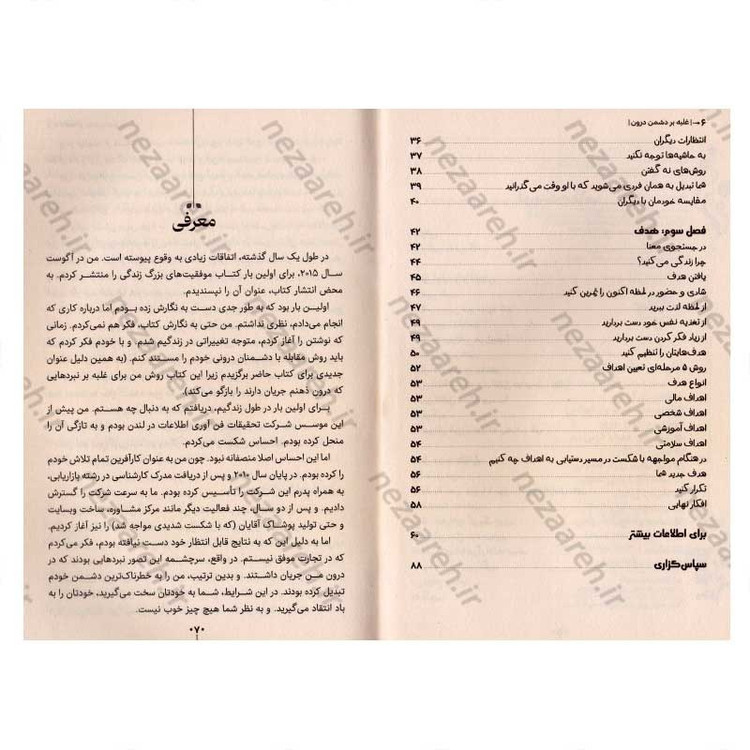 ۶ ← | غلبه بر دشمن درون |
انتظارات دیگران ۳۶
به حاشیه‌ها توجه نکنید ۳۷
روش‌های نه گفتن ۳۸
شما تبدیل به همان فردی می‌شوید که با او وقت می‌گذرانید ۳۹
مقایسه خودمان با دیگران ۴۰
فصل سوم: هدف ۴۲
در جستجوی معنا ۴۲
چرا زندگی می‌کنید؟ ۴۴
یافتن هدف ۴۵
شادی و حضور در لحظه اکنون را تمرین کنید ۴۶
از لحظه لذت ببرید ۴۷
از تغذیه نفس خود دست بردارید ۴۹
از زیاد فکر کردن دست بردارید ۴۹
هدف‌هایتان را تنظیم کنید ۵۰
روش ۵ مرحله‌ای تعیین اهداف ۵۲
انواع هدف ۵۳
اهداف مالی ۵۳
اهداف شخصی ۵۳
اهداف آموزشی ۵۳
اهداف سلامتی ۵۴
در هنگام مواجهه با شکست در مسیر دستیابی به اهداف چه کنیم ۵۴
هدف جدید شما ۵۶
تکرار کنید ۵۶
افکار نهایی ۵۸
برای اطلاعات بیشتر ۶۰
سپاس‌گزاری ۸۸
معرفی
در طول یک سال گذشته، اتفاقات زیادی به وقوع پیوسته است. من در آگوست
سال ۲۰۱۵، برای اولین بار کتاب موفقیت‌های بزرگ زندگی را منتشر کردم. به
محض انتشار کتاب، عنوان آن را نپسندیدم.
اولین بار بود که به طور جدی دست به نگارش زده بودم اما درباره کاری که
انجام می‌دادم، نظری نداشتم. من حتی به نگارش کتاب، فکر هم نمی‌کردم. زمانی
که نوشتن را آغاز کردم، متوجه تغییراتی در زندگیم شدم و با خودم فکر کردم که
باید روش مقابله با دشمنان درونی خودم را مستند کنم. (به همین دلیل عنوان
جدیدی برای کتاب حاضر برگزیدم زیرا این کتاب روش من برای غلبه بر نبردهایی
که درون ذهنم جریان دارند را بازگو می‌کند).
برای اولین بار در طول زندگیم، دریافتم که به دنبال چه هستم. من پیش از
این موسس شرکت تحقیقات فن آوری اطلاعات در لندن بودم و به تازگی آن را
منحل کرده بودم. احساس شکست می‌کردم.
اما این احساس اصلا منصفانه نبود. چون من به عنوان کارآفرین تمام تلاش خودم
را کرده بودم. در پایان سال ۲۰۱۰ و پس از دریافت مدرک کارشناسی در رشته بازاریابی،
به همراه پدرم این شرکت را تأسیس کرده بودم. ما به سرعت شرکت را گسترش
دادیم. و پس از دو سال، چند فعالیت دیگر مانند مرکز مشاوره، ساخت وبسایت
و حتی تولید پوشاک آقایان (که با شکست شدیدی مواجه شد) را نیز آغاز کردیم.
اما به دلیل این که به نتایج قابل انتظار خود دست نیافته بودم، فکر می‌کردم
که در تجارت موفق نیستم. در واقع، سرچشمه این تصور نبردهایی بودند که در
درون من جریان داشتند. و بدین ترتیب، من را به خطرناک‌ترین دشمن خودم
تبدیل کرده بودند. در این شرایط، شما به خودتان سخت می‌گیرید، خودتان را به
باد انتقاد می‌گیرید. و به نظر شما هیچ چیز خوب نیست.
۰۷۰
nezaareh.ir
nezaareh.ir
nezaareh.ir
nezaareh.ir
nezaareh.ir
nezaareh.ir
nezaareh.ir
nezaareh.ir